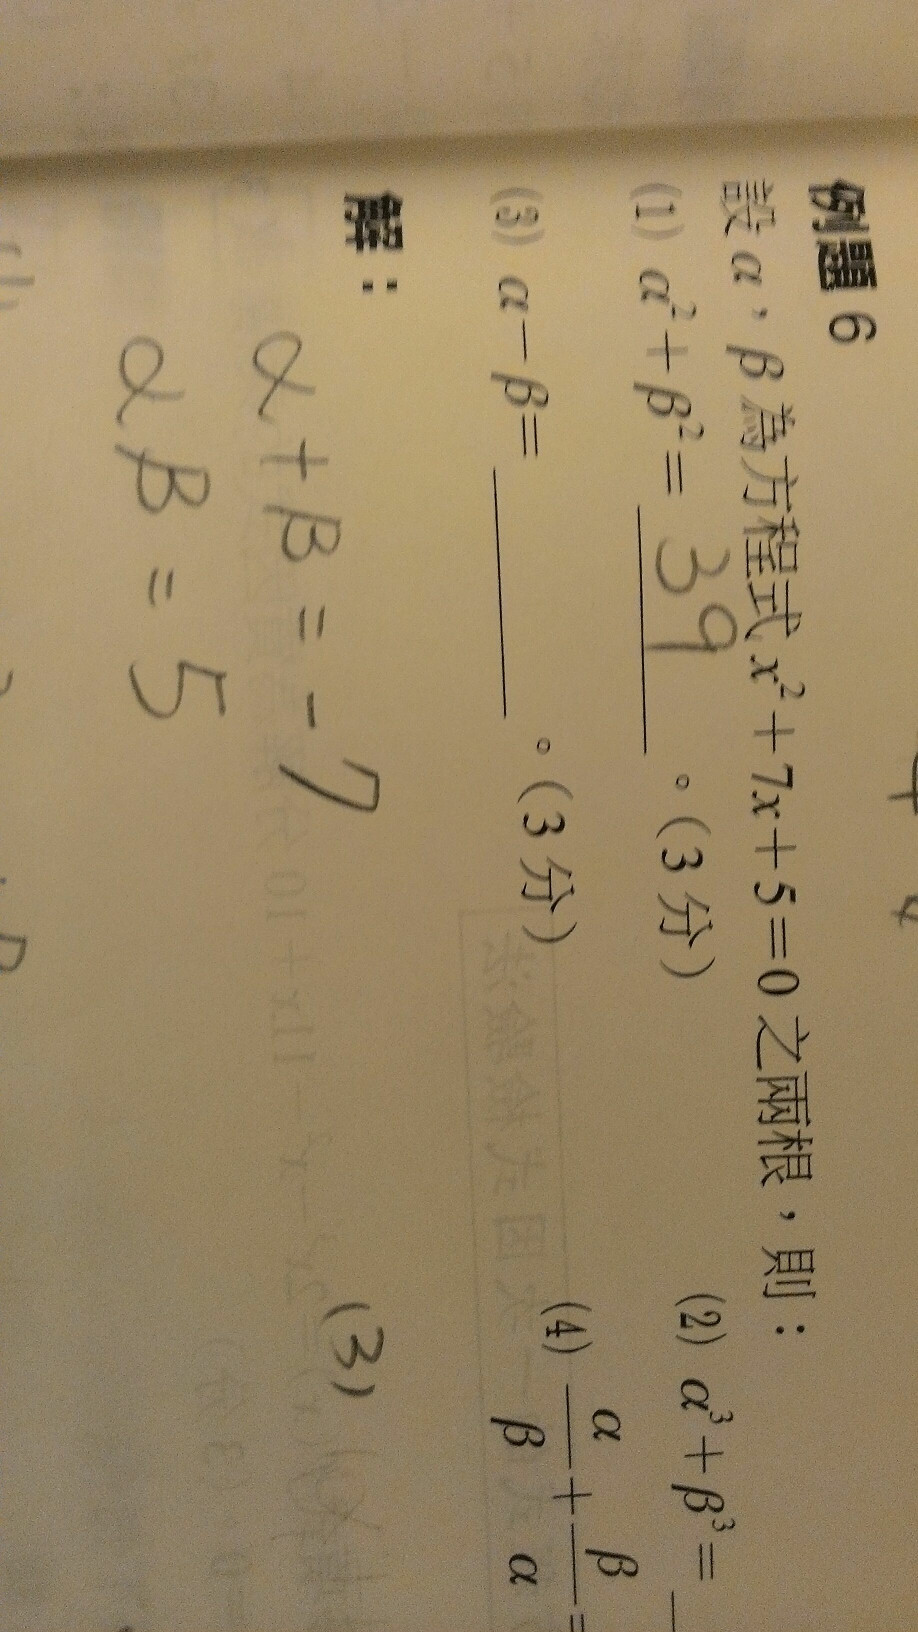 例題 6
設 α，β 為方程式 x² + 7x + 5 = 0 之兩根，則：
(1) α² + β² = 39 。(3 分)
(2) α³ + β³ =
(3) α − β = ______ 。(3 分)
(4) α/β + β/α =
解：
α + β = -7
(3)
αβ = 5